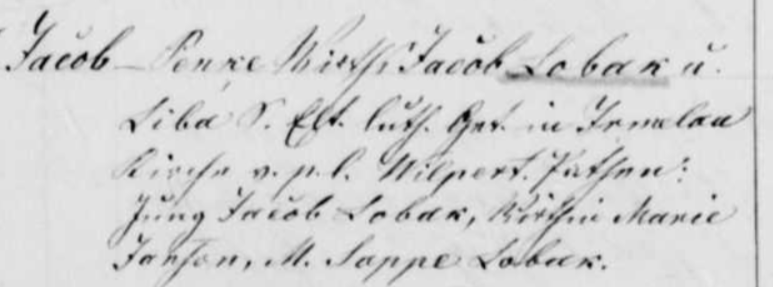 Jacob – Penke Wirths Jacob Lobak u.
Liba S. Elt. luth. Get. in Irmelau
Kirche v. p. l. Hilpert. Pathen:
Jung Jacob Lobak, Wirthin Marie
Janson, M. Sappe Lobak.